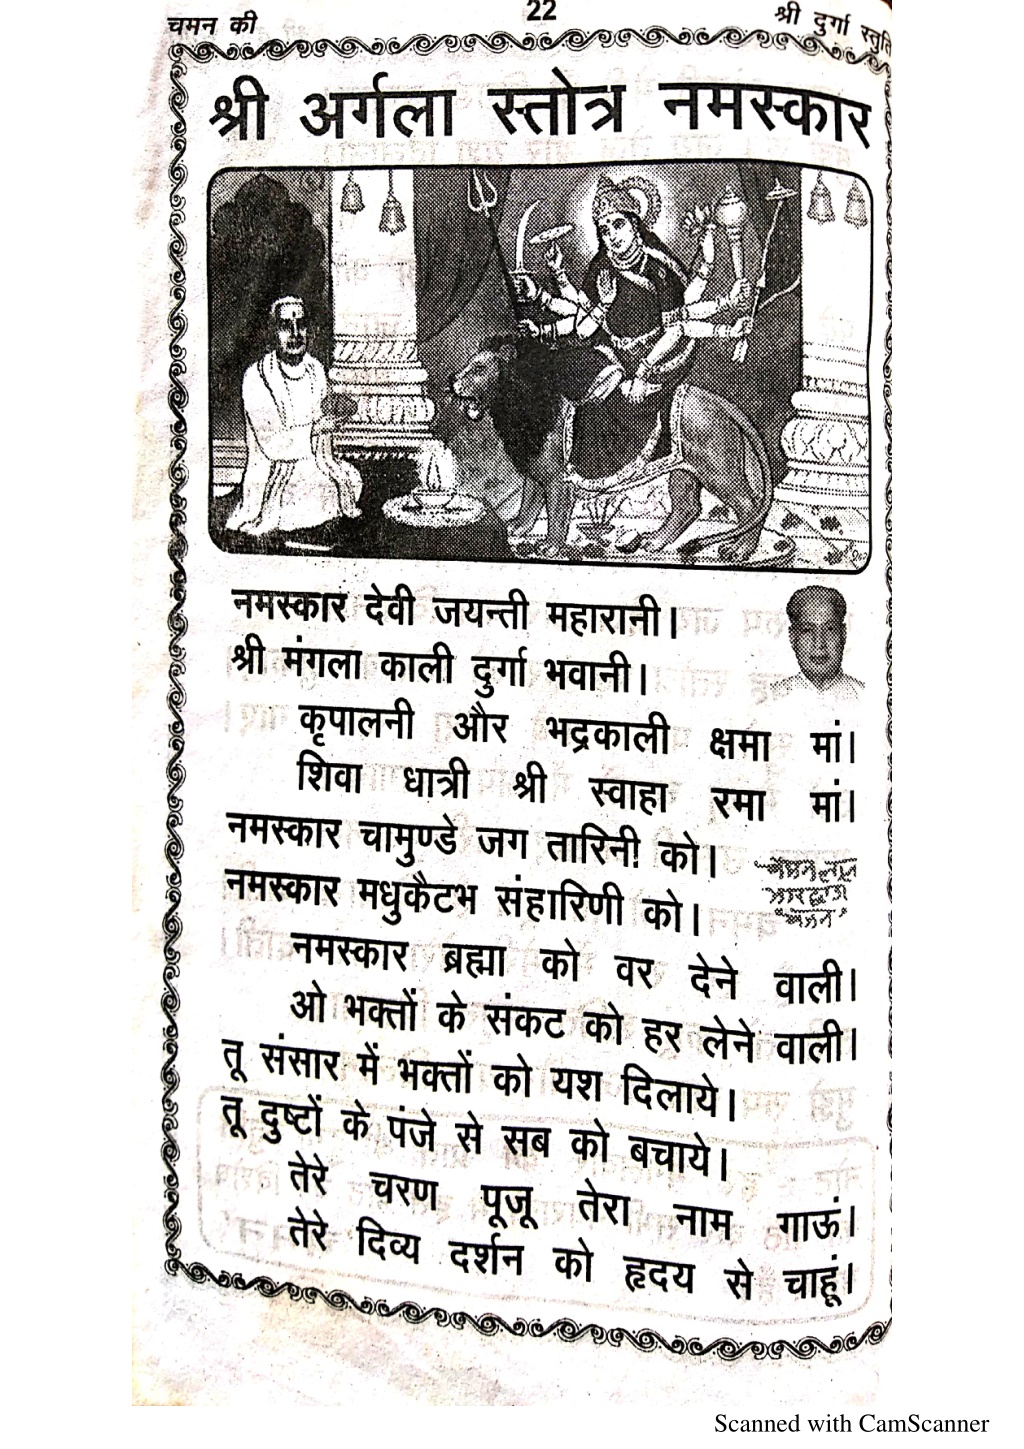 चमन की
22
श्री दुर्गा स्तुति
श्री अर्गला स्तोत्र नमस्कार
नमस्कार देवी जयन्ती महारानी।
श्री मंगला काली दुर्गा भवानी।
कृपालनी और भद्रकाली क्षमा मां।
शिवा धात्री श्री स्वाहा रमा मां।
नमस्कार चामुण्डे जग तारिनी को।
नमस्कार मधुकैटभ संहारिणी को।
चमन लाल
भारद्वाज
"चमन"
नमस्कार ब्रह्मा को वर देने वाली।
ओ भक्तों के संकट को हर लेने वाली।
तू संसार में भक्तों को यश दिलाये।
तू दुष्टों के पंजे से सब को बचाये।
तेरे चरण पूजू तेरा नाम गाऊं।
तेरे दिव्य दर्शन को हृदय से चाहूं।
Scanned with CamScanner